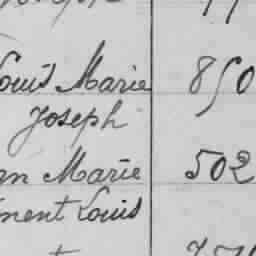 Louis Marie 850
Joseph
an Marie 502
ment Louis